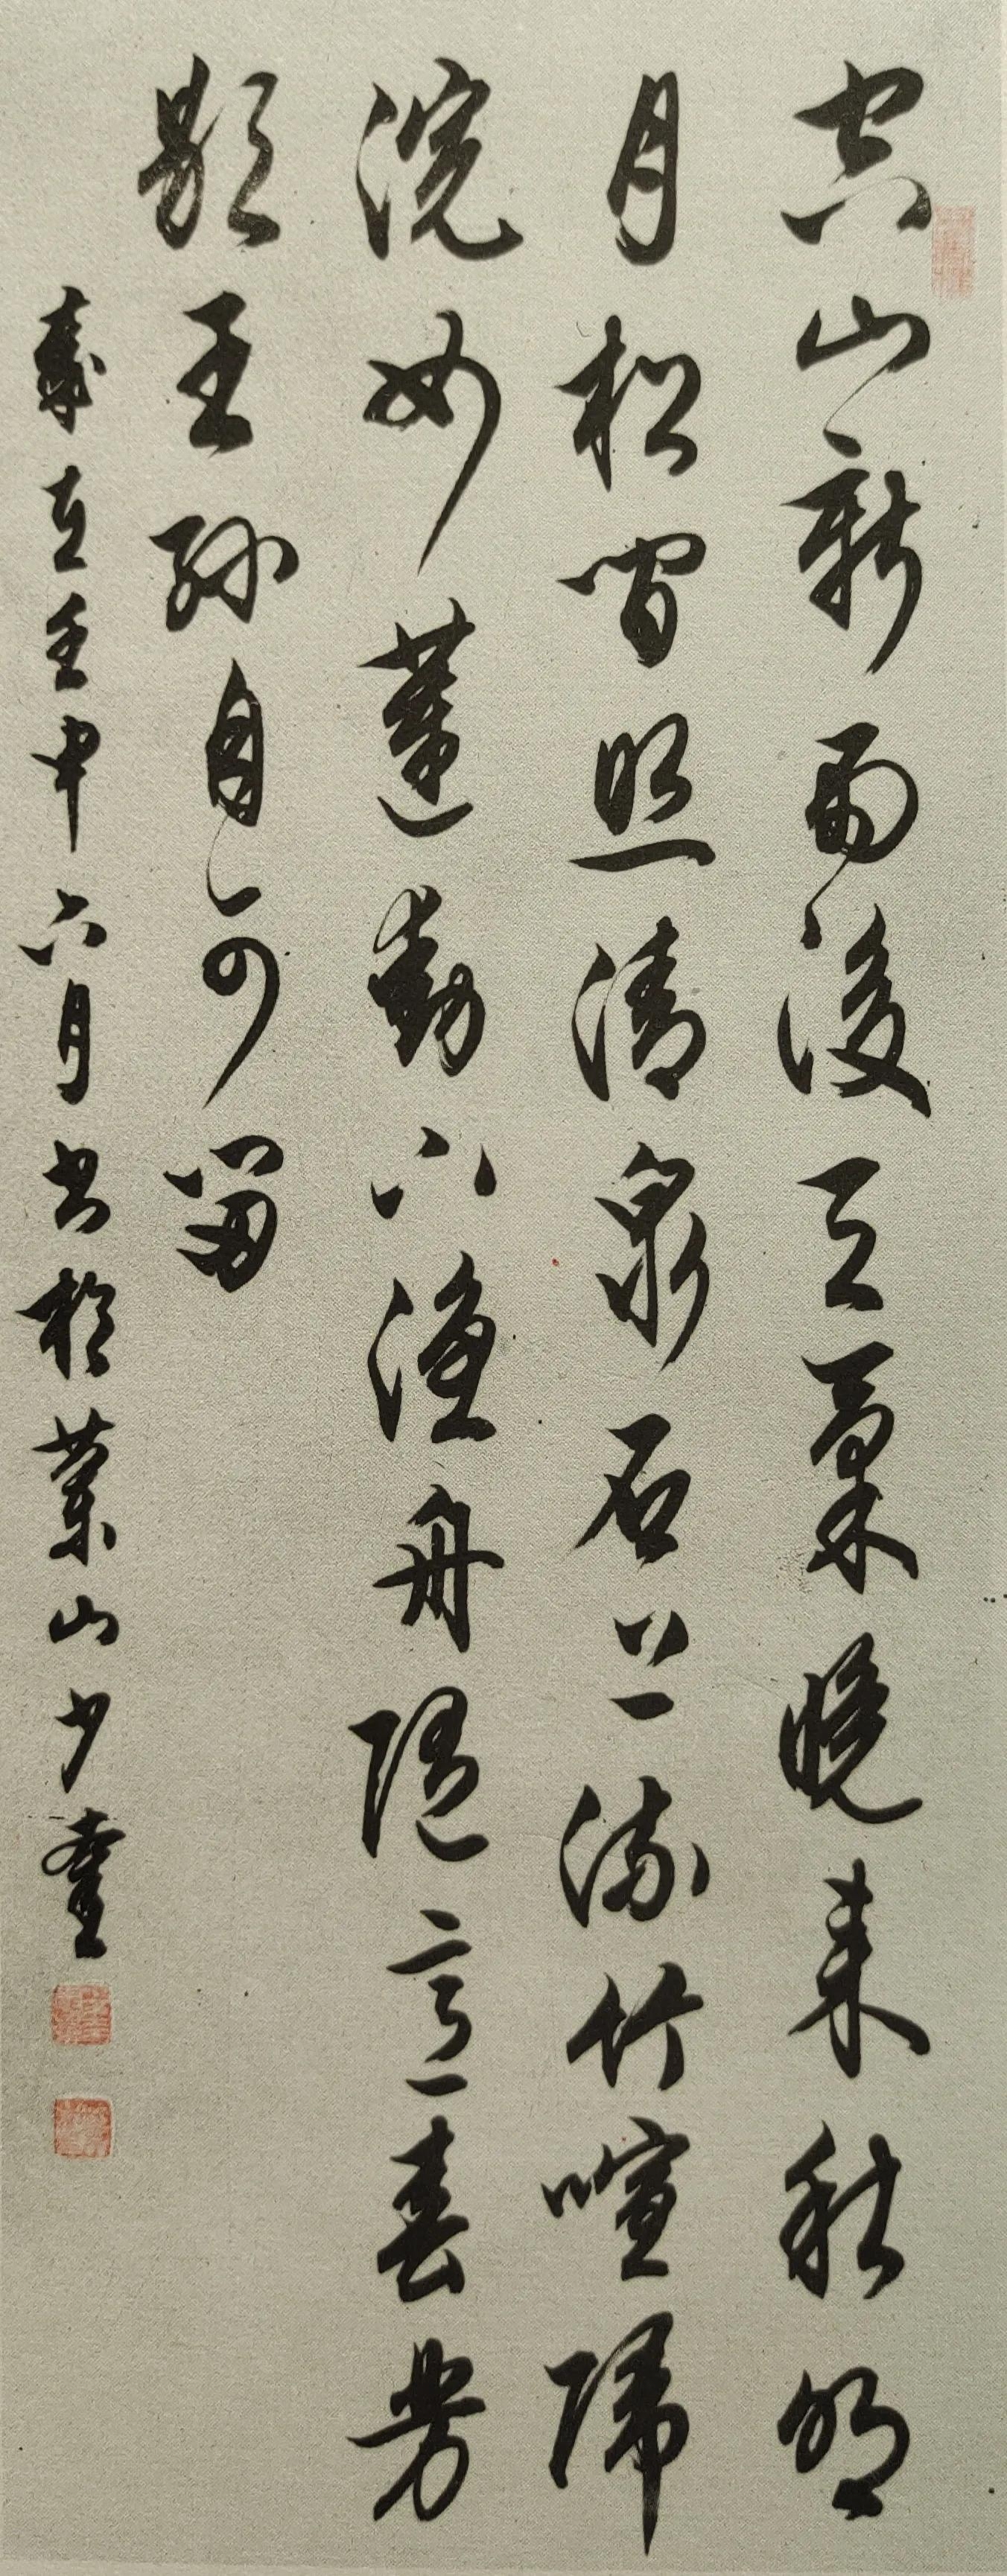 空山新雨後天氣晚来秋明
月松間照清泉石上流竹喧歸
浣女蓮動下漁舟随意春芳
歇王孫自可留
歲在壬申六月書於葉山少奎